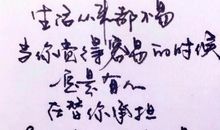 生活从来都不易
当你觉得容易的时候
一定是有人
在替你承担